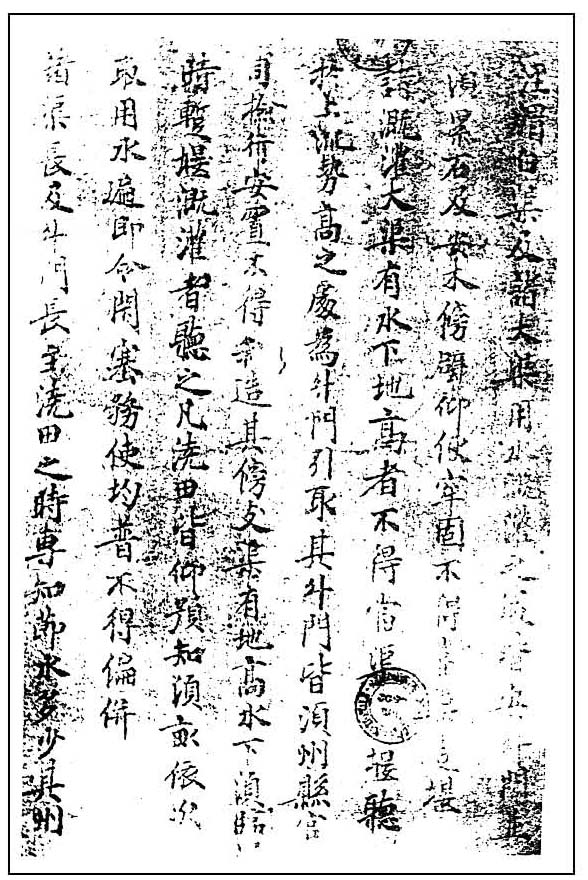 涇渭白渠及諸大渠用水溉灌之處皆安斗門並
須累石及安木傍壁仰使牢固不得當渠造堰
諸溉灌大渠有水下地高者不得當渠堰聽
於上流勢高之處為斗門引取其斗門皆須州縣官
司檢行安置不得私造其傍支渠有地高水下須臨
時暫堰溉灌者聽之凡澆田皆仰預知頃畝依次
取用水遍即令閉塞務使均普不得偏併
諸渠長及斗門長至澆田之時專知節水多少其州